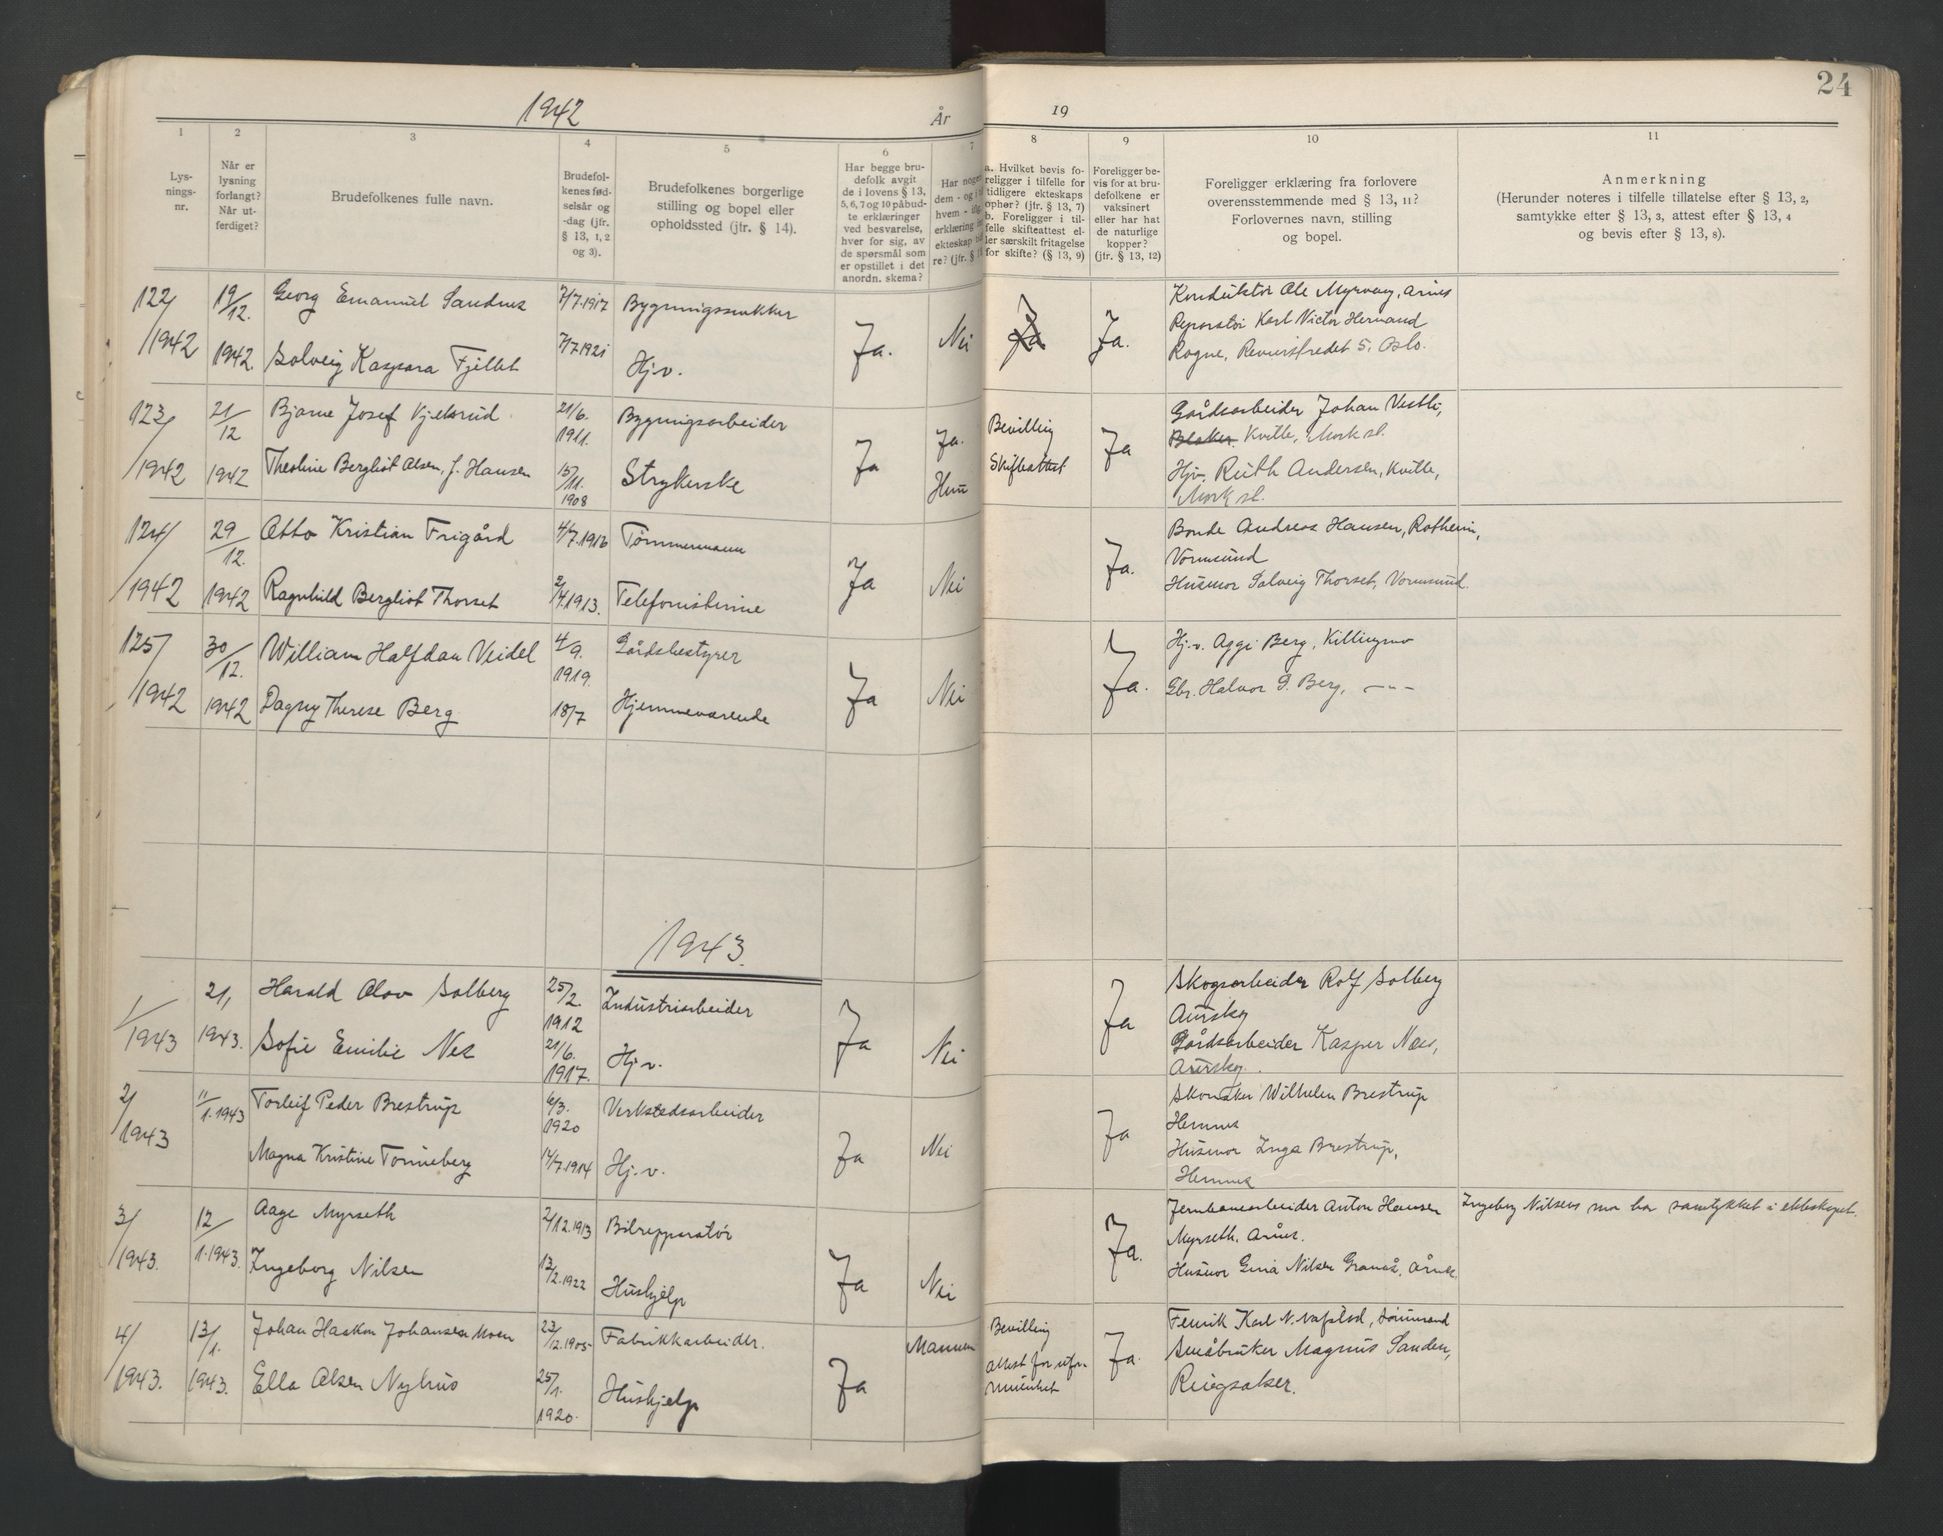 24
1942
År
19
1
2
3
4
5
6
7
8
9
10
11
Lys-
nings-
nr.
Når er
lysning
forlangt?
Når ut-
ferdiget?
Brudefolkenes fulle navn.
Brudefol-
kenes fød-
selsår og
-dag (jfr.
§ 13, 1, 2
og 3).
Brudefolkenes borgerlige
stilling og bopel eller
opholdssted (jfr. § 14).
Har begge bru-
defolk avgit
de i lovens § 13,
5, 6, 7 og 10 påbud-
te erklæringer
ved besvarelse,
hver for sig, av
de spørsmål som
er opstillet i det
anordn. skema?
Har nogen
dem - og i
hvem -
erklæring
ekteskap
re? (jfr. §
a. Hvilket bevis fo-
religger i tilfelle for
tidligere ekteskaps
ophør? (jfr. § 13, 7)
b. Foreligger i til-
felle skifteattest el-
ler særskilt fritagelse
for skifte? (§ 13, 9)
Foreligger be-
vis for at bru-
defolkene er
vaksinert
eller har hat
de naturlige
kopper?
(jfr. § 13, 12)
Foreligger erklæring fra forlovere
overensstemmende med § 13, 11?
Forlovernes navn, stilling
og bopel.
Anmerkning
(Herunder noteres i tilfelle tillatelse efter § 13, 2,
samtykke efter § 13, 3, attest efter § 13, 4
og bevis efter § 13, 8).
122/
/1942
19/12.
1942.
Georg Emanuel Sandnes
Solveig Kaspara Fjellet
7/7.1917
7/7.1921
Bygningssnekker
Hj.v.
Ja.
Nei
Ja
Ja.
Konduktør Ole Myrvang, Årnes
Reparatør Karl Victor Hernand
Rogne, Revierstredet 5, Oslo.
123/
/1942
21/12
1942
Bjarne Josef Kjelsrud
Theoline Bergliot Olsen, f. Hansen
21/6.
1911.
15/11.
1908
Bygningsarbeider
Strykerske
Ja
Ja.
Hun
Bevilling
Skifteattest
Ja
Gårdsarbeider Johan Vestli,
Blaker. Kville, Mork st.
Hjv. Ruth Andersen, Kville,
Mork st.
124/
/1942
29/12.
1942
Otto Kristian Frigård
Ragnhild Bergliot Thorset
4/7.1916
2/4.1913.
Tømmermann
Telefonistinne
Ja
Nei
Ja.
Bonde Andreas Hansen, Rotheim,
Vormsund
Husmor Solveig Thorset, Vormsund.
125/
/1942
30/12.
1942
William Halfdan Veidel
Dagny Therese Berg
4/9.
1919.
18/7
Gårdsbestyrer
Hjemmeværende
Ja
Nei
Ja.
Hj.v. Aggi Berg, Killingmo
Gbr. Halvor G. Berg, —"—
1943.
1/
/1943
21,
1943.
Harald Olav Solberg
Sofie Emilie Nes
25/2.
1912
21/6.
1917.
Industriarbeider
Hj.v.
Ja
Nei
Ja
Skogsarbeider Rolf Solberg
Aursky
Gårdsarbeider Kasper Næss,
Aursky.
2/
/1943
11/1.1943
Torleif Peder Brestrup
Magna Kristine Tønneberg
6/3.
1920
14/7.1914
Verkstedsarbeider
Hj.v.
Ja
Nei
Ja
Skomaker Wilhelm Brestrup
Hemnes
Husmor Inga Brestrup,
Hemnes
3/
/1943.
12/1.1943.
Aage Myrseth
Ingeborg Nilsen
2/12.1913
13/2.1922
Bilreparatør
Hushjelp
Ja
Nei
Ja.
Jernbanearbeider Anton Hansen
Myrseth. Årnes.
Husmor Gina Nilsen Granås, Årnes,
Ingeborg Nilsens mor har samtykket i ekteskapet.
4/
/1943.
13/1.
1943.
Johan Haakon Johansen Moen
Ella Olsen Nyhus
23/12.1905
25/1.
1920.
Fabrikkarbeider.
Hushjelp
Ja
Mannen
Bevilling
attest for ufor-
muenhet
Ja.
Fenrik Karl N. Nafstad, Sørumsand
Småbruker Magnus Sanden,
Ringsaker.